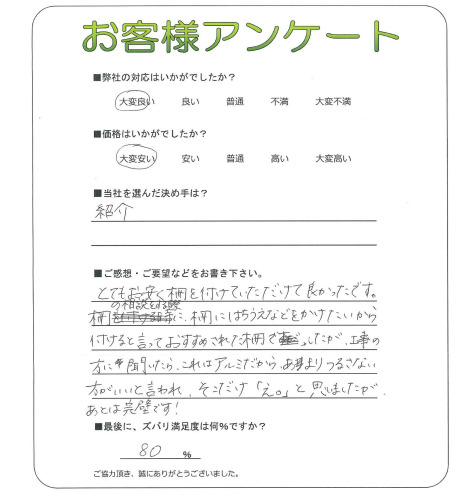 お客様アンケート
■弊社の対応はいかがでしたか？
大変良い 良い 普通 不満 大変不満
■価格はいかがでしたか？
大変安い 安い 普通 高い 大変高い
■当社を選んだ決め手は？
紹介
■ご感想・ご要望などをお書き下さい。
とてもお安く柵を付けていただけて良かったです。
の相談をする際
柵に、柵にはちうえなどをかけたいから
付けると言っておすすめされた柵でだったが、工事の
方に聞いたら、これはアルミだから、あまりつるさない
方がいいと言われ、そこだけ「え。」と思いましたが、
あとは完璧です!
■最後に、ズバリ満足度は何%ですか？
80 %
ご協力頂き、誠にありがとうございました。